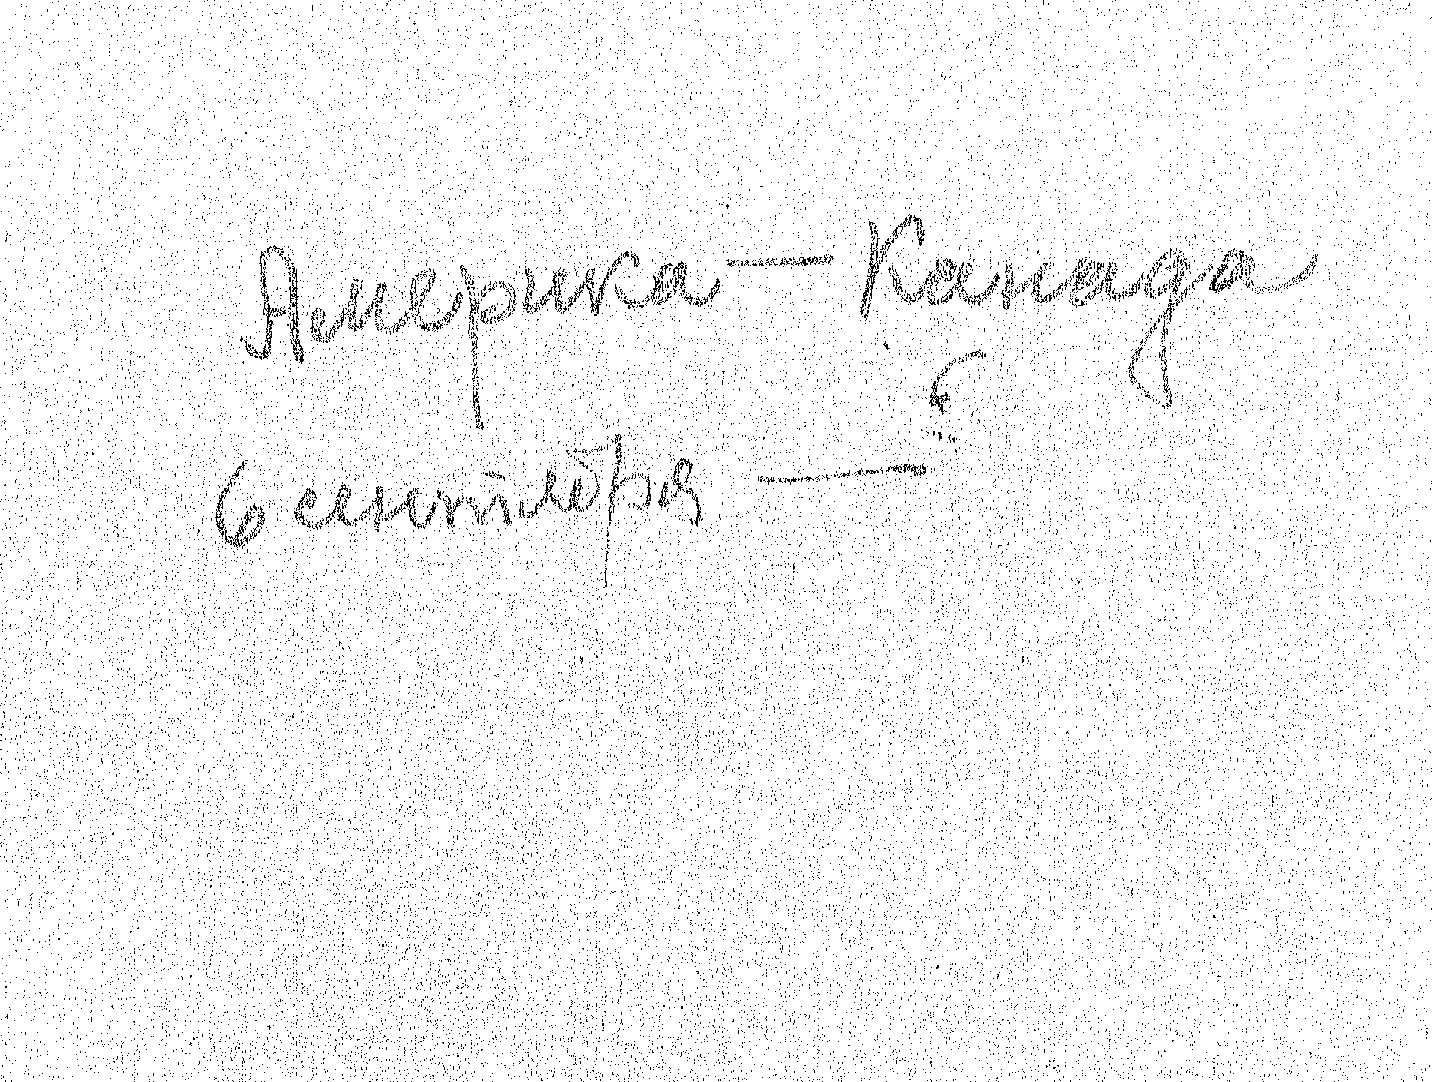 Америка — Канада
6 сентября —